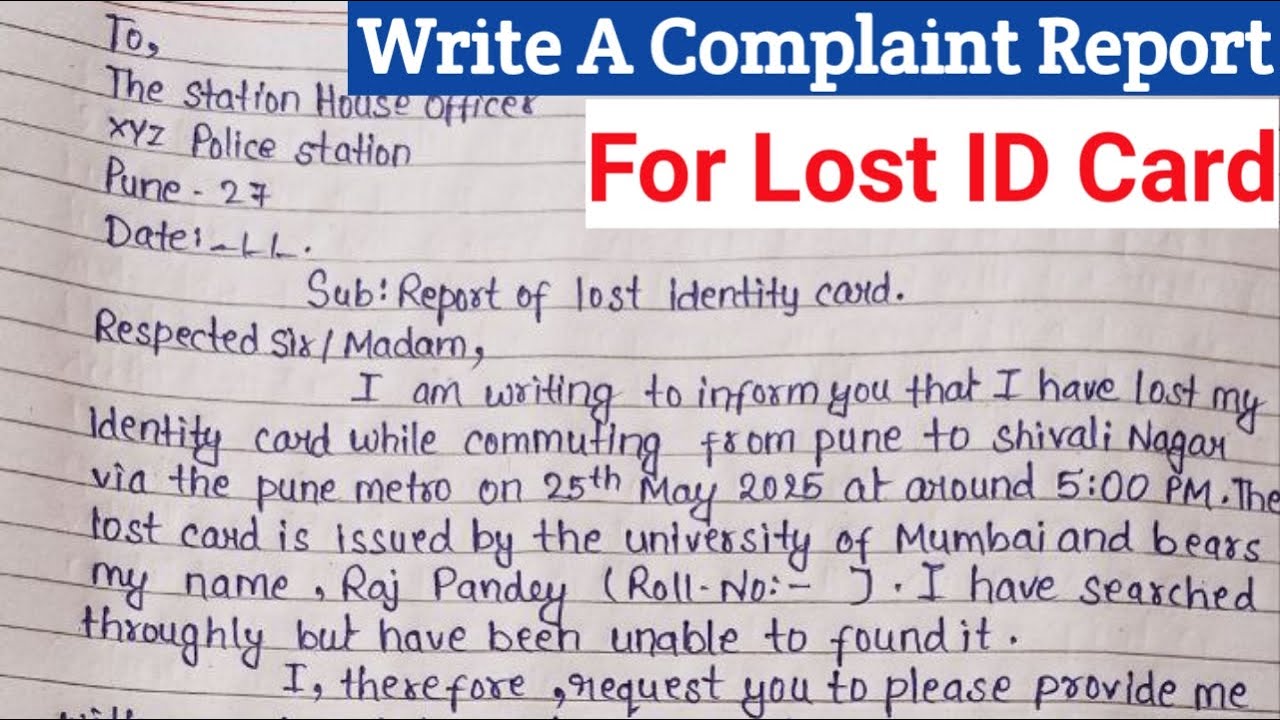 Write A Complaint Report
For Lost ID Card
To,
The Station House Officer
XYZ Police station
Pune - 27
Date:-
Sub: Report of lost identity card.
Respected Sir/Madam,
I am writing to inform you that I have lost my
Identity card while commuting from pune to Shivali Nagar
via the pune metro on 25th May 2025 at around 5:00 PM. The
lost card is issued by the university of Mumbai and bears
my name, Raj Pandey (Roll-No:- ). I have searched
throughly but have been unable to found it.
I, therefore, request you to please provide me